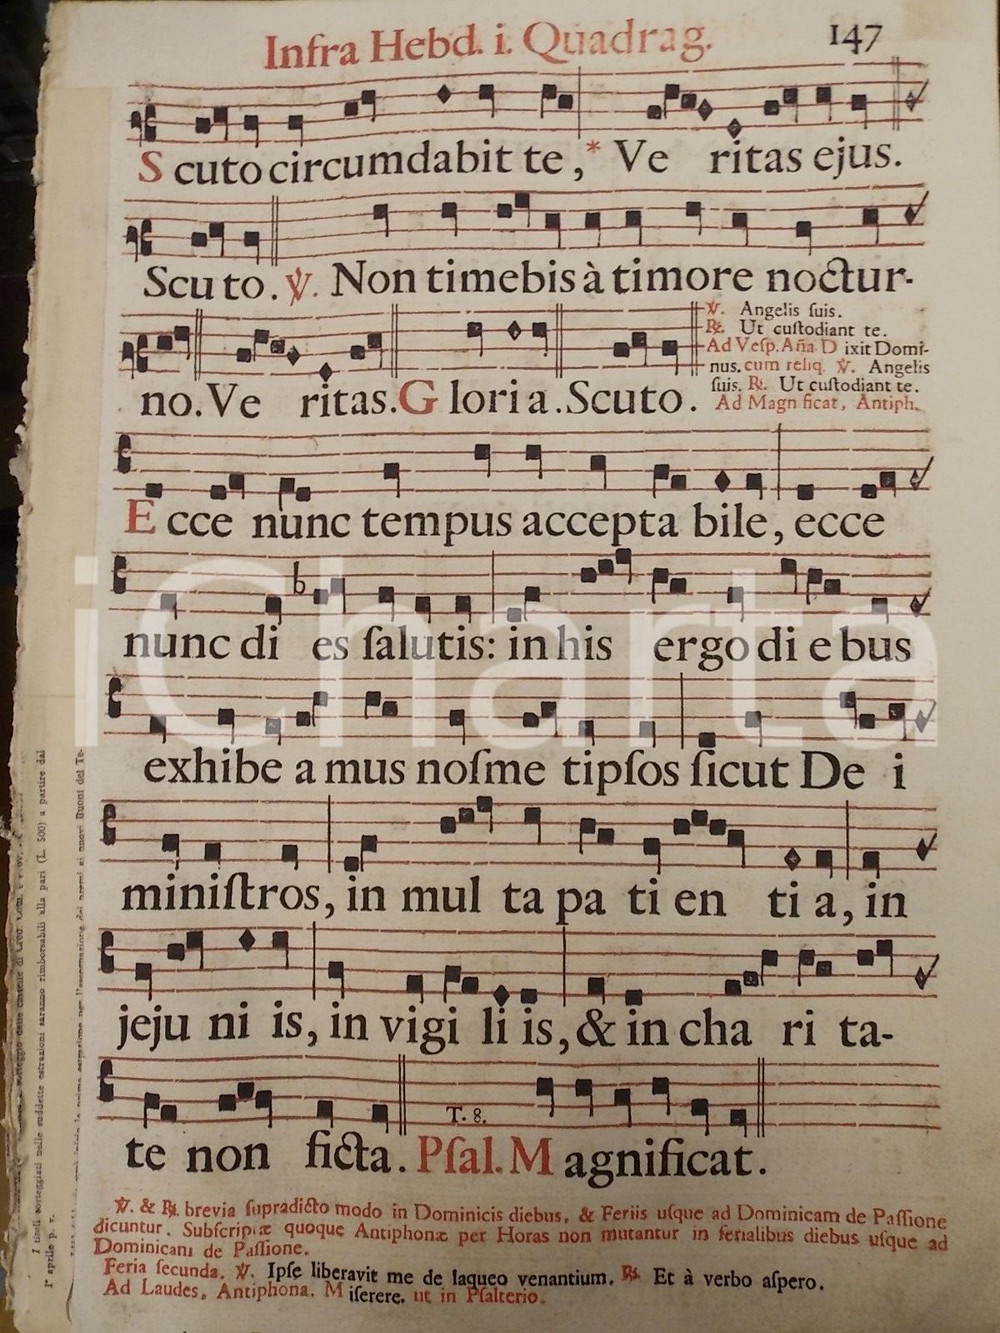 Infra Hebd. i. Quadrag.
147
Scuto circumdabit te,* Veritas ejus.
Scuto. ℣. Non timebis à timore noctur-
no. Veritas. Gloria. Scuto.
℣. Angelis ſuis.
℟. Ut cuſtodiant te.
Ad Veſp. Aña D ixit Domi-
nus. cum reliq. ℣. Angelis
ſuis. ℟. Ut cuſtodiant te.
Ad Magn ficat, Antiph.
Ecce nunc tempus acceptabile, ecce
nunc dies ſalutis: in his ergo diebus
exhibeamus noſmetipſos ſicut Dei
miniſtros, in multa patientia, in
jejuniis, in vigiliis, & in charita-
T. 8.
te non ficta. Pſal. Magnificat.
℣. & ℟. brevia ſupradicto modo in Dominicis diebus, & Feriis uſque ad Dominicam de Paſſione
dicuntur. Subſcriptæ quoque Antiphonæ per Horas non mutantur in ferialibus diebus uſque ad
Dominicam de Paſſione.
Feria ſecunda. ℣. Ipſe liberavit me de laqueo venantium. ℟. Et à verbo aſpero.
Ad Laudes, Antiphona. Miſerere. ut in Pſalterio.
I titoli sorteggiati nelle suddette estrazioni saranno rimborsabili alla pari (L. 500) a partire dal
1° aprile p. v.
iCharta